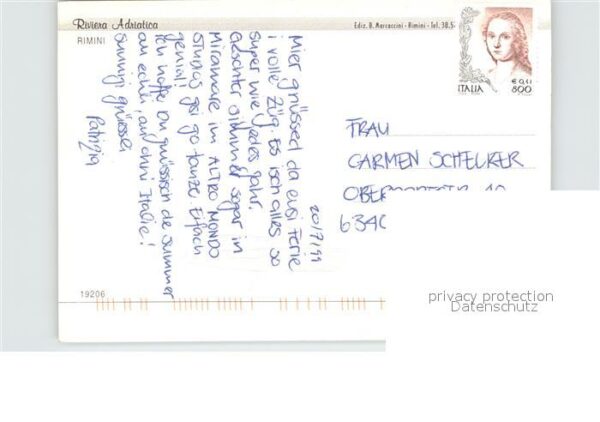 Riviera Adriatica
RIMINI
Ediz. B. Marcaccini - Rimini - Tel. 38.5
ITALIA
€ 0,41
800
20/7/99
Mier gnüssed da eusi Ferie
i volle Züg. Es isch alles so
super wie jedes Jahr.
Geschter simmer sogar in
Miramare im ALTRO MONDO
STUDIOS gsi go tanze. Eifach
genial!
Ich hoffe Du gnüssisch de Summer
au echli, au ohni Italie!
Sunnigi Grüessli
Patrizia
FRAU
CARMEN SCHELKER
634
19206
privacy protection
Datenschutz